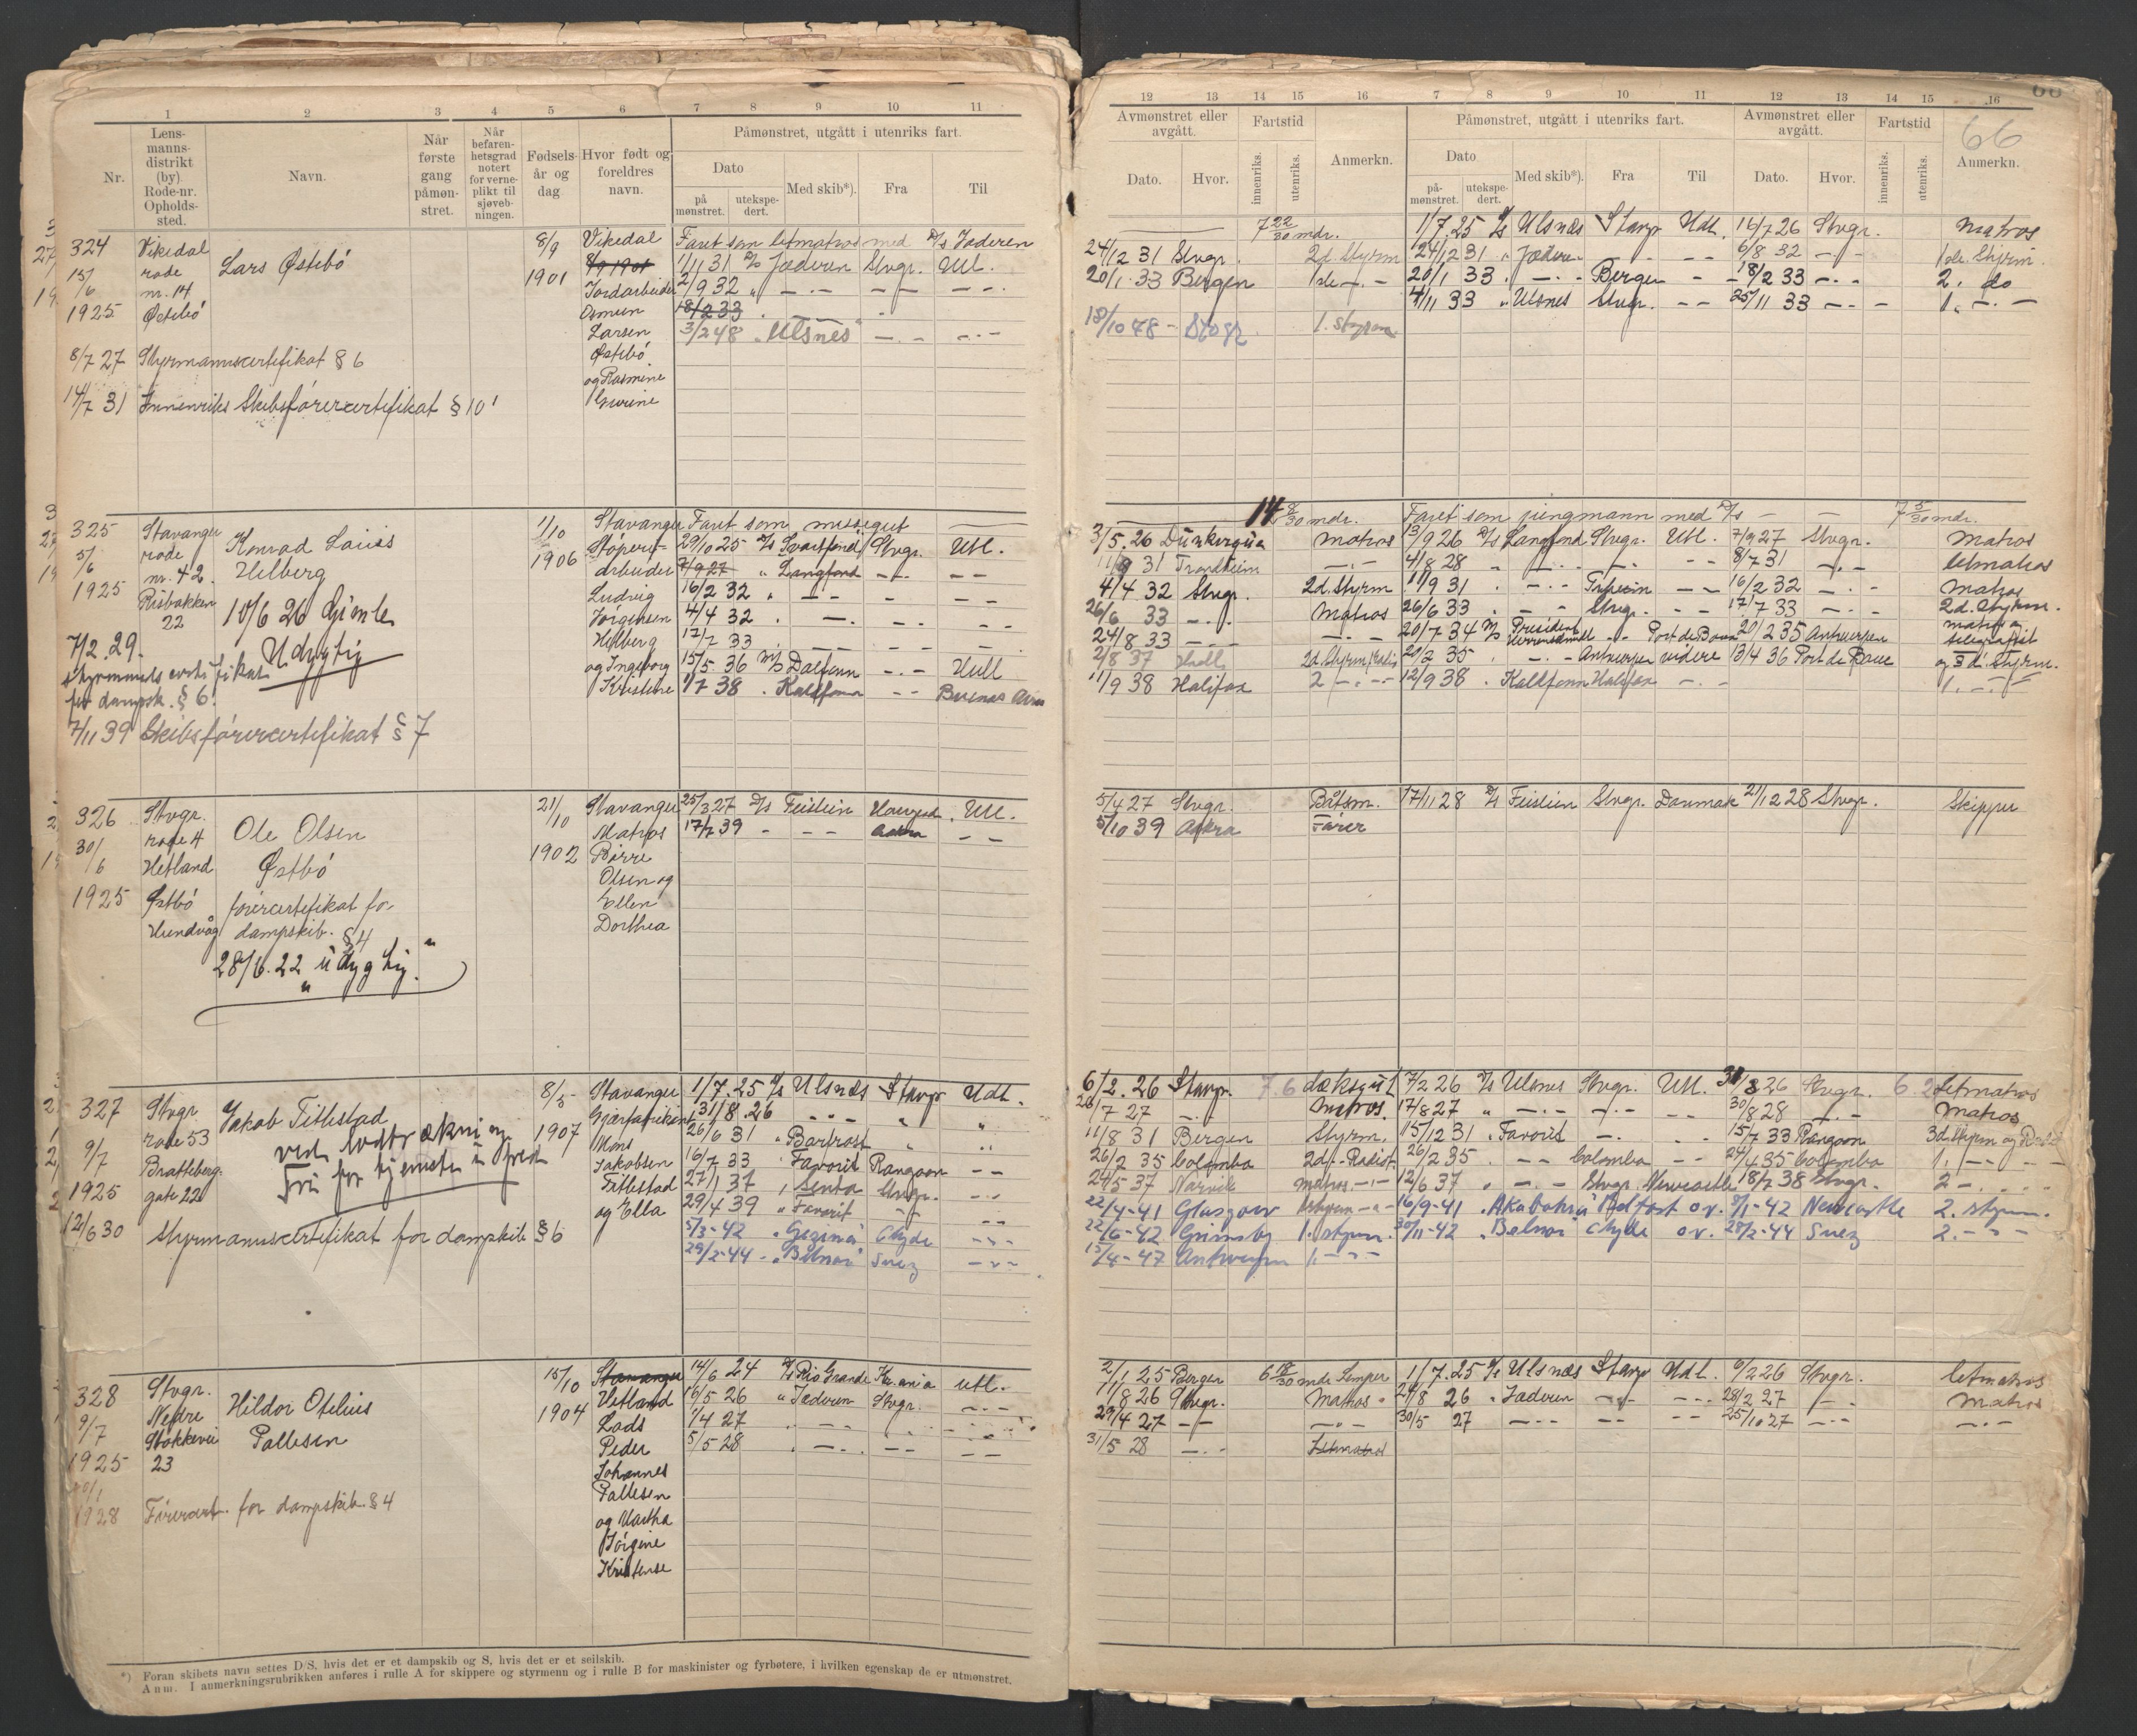 1 2 3 4 5 6 7 8 9 10 11
Nr. Lens-manns-distrikt (by) Rode-nr. Opholds-sted. Navn. Når første gang påmøn-stret. Når befaren-hetsgrad notert for verne-plikt til sjøveb-ningen. Fødsels-år og dag. Hvor født og foreldres navn. Påmønstret, utgått i utenriks fart.
Dato Med skib*). Fra Til
på mønstret. utekspe-dert.
324 Vikedal Lars Østebö 8/9 Vikedal Faret som letmatros med D/s Jæderen
15/6 rode 1901 8/9 1901 1/11 31 D/s Jæderen Stvgr. Utl.
nr. 14 Jordarbeider 2/9 32 " — — —
1925 Østebö Osmun 18/2 33
Larsen 3/2 48 "Ulsnes" — —
8/7 27 Styrmannscertifikat § 6 Østebö
og Rasmine
14/7 31 Innenriks Skibsförercertifikat § 10 Gurine
325 Stavanger Konrad Louis 1/10 Stavanger Faret som messegut
5/6 rode Helberg 1906 Støperi- 29/10 25 D/s Svartfond Stvgr. Utl.
nr. 42. arbeider 7/9 27 " Langfond — —
1925 Risbakken Ludvig 16/2 32 " — —
22 10/6 26 Gimle Jørgensen 4/4 32 . — —
7/2. 29. Udygtig Helberg 17/7 33 — — —
Styrmands certifikat og Ingeborg 15/5 36 M/s Dalfonn — Hull
for dampsk. § 6. Kristine 1/7 38 . Kaldfonn — Buenos Aires
7/11 39 Skibsförercertifikat § 7
326 Stvgr. Ole Olsen 21/10 Stavanger 25/3 27 D/s Feistein Haugesd. Utl.
30/6 rode 4 Østbö Matros 17/7 39 - — Aakra —
Hetland 1902 Børre
1925 Østbö förercertifikat for Olsen og
Hundvåg dampskib. § 4 Ellen
28/6. 22 "udygtig." Dorthea
327 Stvgr Jakob Tittestad 8/5 Stavanger 1/7. 25 D/s Ulsnæs Stavgr Udl.
9/7 rode 53 ved lodtrækning 1907 31/8. 26 — " "
Bratteberg. Fri for tjeneste i fred Mons 26/6 31 " Bartrost " "
1925 gate 22 Jakobsen 16/7 33 . Favorit Rangoon —
Tittestad 27/1 37 , Senta Stvgr. —
og Ella 29/4 39 " Favorit — —
12/6 30 Styrmannscertifikat for dampskib § 6 5/3-42 "Gezina" Clyde —
29/2-44 - "Belnor" Suez —
328 Stvgr. Hildor Otelius 15/10 Stavanger 14/6 24 D/s Rio Grande Kr.ania Utl.
9/7 Nedre Pallesen Hetland 16/5 26 " Jæderen Stvgr. —
Stokkevei 1904 Lods 1/4 27 . — —
1925 23 Peder 5/5 28 . — — —
Johannes
Pallesen
1928 Förercert. for dampskib § 4 og Martha
Jörgine
Kristense
*) Foran skibets navn settes D/S, hvis det er et dampskib og S, hvis det er et seilskib.
Anm. I anmerkningsrubrikken anføres i rulle A for skippere og styrmenn og i rulle B for maskinister og fyrbøtere, i hvilken egenskap de er utmønstret.
12 13 14 15 16 7 8 9 10 11 12 13 14 15 16
66
Avmønstret eller avgått. Fartstid Anmerkn. Påmønstret, utgått i utenriks fart. Avmønstret eller avgått. Fartstid Anmerkn.
Dato. Hvor. innenriks. utenriks. Dato Med skib*). Fra Til Dato. Hvor. innenriks. utenriks.
på-mønstret. utekspe-dert.
7 22/30 mdr. 1/7.25 D/s Ulsnæs Stavgr Udl. 14/7 26 Stvgr. Matros
24/12 31 Stvgr. 2d. Styrm 24/12 31 " Jæderen — — 6/8 32 — 1ste. Styrm.
20/1 33 Bergen 1ste — 20/1 33 . — Bergen — 18/2 33 — 2. do
4/11 33 " Ulsnes Stvgr. — 25/11 33 — 1. —
18/10 48 - Stvgr 1. styrm.
14 8/30 mdr. Faret som jungmann med D/s — — 7 5/30 mdr.
3/5. 26 Dünkerque Matros 13/9 26 D/s Langfond Stvgr. Utl. 7/9 27 Stvgr. Matros
11/9 31 Trondheim — 4/8 28 " — — 8/7 31 — letmatros
4/4 32 Stvgr. 2d. Styrm 11/9 31 . — — 16/2 32 — Matros
26/6 33 — Matros 26/6 33 . — Stvgr. — 17/7 33 — 2d. Styrm.
24/8 33 — — 20/7 34 M/s President — Port de Bouc 20/2 35 Antwerpen matros og telegrafist
2/8 37 Hull 2d. Styrm/Radio 20/2 35 . — Antwerpen videre 13/4 36 Port de Bouc og 3d. Styrm.
11/9 38 Halifax 2 — 12/9 38 . Kaldfonn Halifax — 1. —
5/4 27 Stvgr. Båtsm. 17/11 28 D/s Feistein Stvgr. Danmark 21/12 28 Stvgr. Skipper
5/10 39 Aakra Förer
6/2. 26 Stavgr. 7.6 dæksgut 7/2 26 D/s Ulsnes Stvgr. Utl. 31/8 26 Stvgr. 6.2 letmatros
26/7 27 — Matros. 17/8 27 " — — — 30/8 28 — Matros
11/8 31 Bergen Styrm. 15/12 31 " Favorit — — 15/7 33 Rangoon 3d. Styrm og Radiot
26/2 35 Colombo 2d - Radist 26/2 35 . — Colombo — 24/4 35 Colombo 1. —
29/5 37 Narvik Matros — 12/6 37 " — Stvgr. Newcastle 18/7 38 Stvgr. 2 —
22/4-41 Glasgow 16/9-41 . Akabahra Belfast o.v. 9/1-42 Newcastle 2. styrm.
22/6-42 Grimsby 1. styrm. 30/11-42 " Belnor Clyde o.v. 28/2-44 Suez 2. —
15/4-47 Antwerpen 1. —
2/1 25 Bergen 6 18/30 mdr Lemper 1/7.25 D/s Ulsnæs Stavgr Udl. 6/2 26 Stvgr. letmatros
11/8 26 Stvgr. Matros 24/8 26 " Jæderen — — 28/2 27 — Matros
29/4 27 — — 30/5 27 — — — 25/10 27 — —
31/5 28 — Letmatros